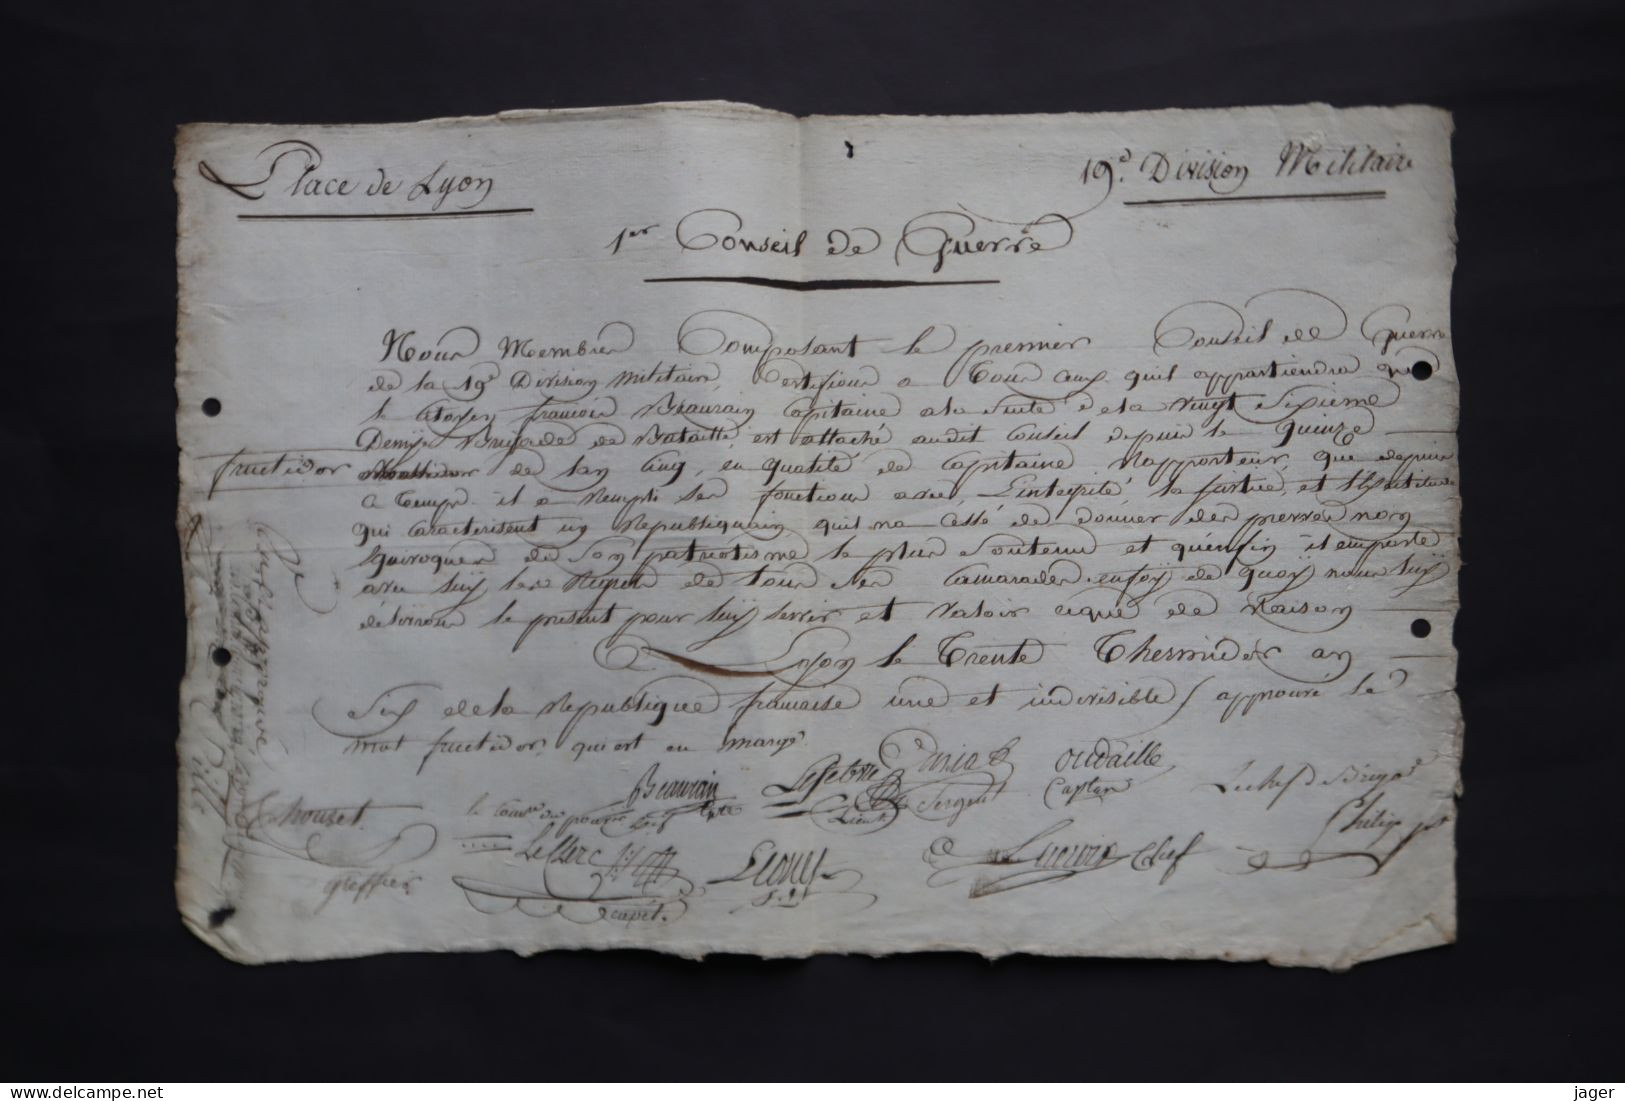 Place de Lyon
19e. Division Militaire
1er Conseil de Guerre
Nous Membres Composant le premier Conseil de Guerre
de la 19e Division Militaire, Certifions a Tous ceux qu'il appartiendra que
le Citoyen françois Beaurain Capitaine a la Suite de la Vingt Sixieme
Demye Brigade de Bataille, est attaché audit Conseil depuis le Quinze
fructidor
de l'an Cinq, en qualité de Capitaine Rapporteur, que depuis
ce temps il a Rempli ses fonctions avec L'integrité, la Justice, et l'Exactitude
qui caracterisent un Republiquain, qu'il na céssé de donner des preuves non
Equivoques de Son patriotisme le plus Soutenu et qu'enfin il emporte
avec luy les Regrets de tous Ses Camarades. enfoy de quoy nous luy
délivrons le present pour luy servir et valoir ce que de Raison
Lyon le Trente Thermidor an
Six de la Republique francaise une et indivisible / approuvé le
mot fructidor qui est en marge
Beaurain
Cpte
Lefebvre
Lieut
Sergent
oudaille
Captne
Le chef de Brigade
Philip
Chouzet
Greffier
Leclerc
capit.
Chef
jager
delcampe.net